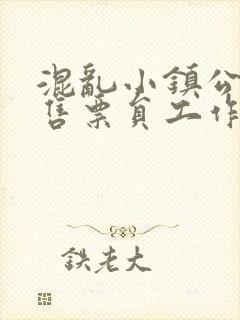 混亂小鎮公
售票員工作
鉄老大